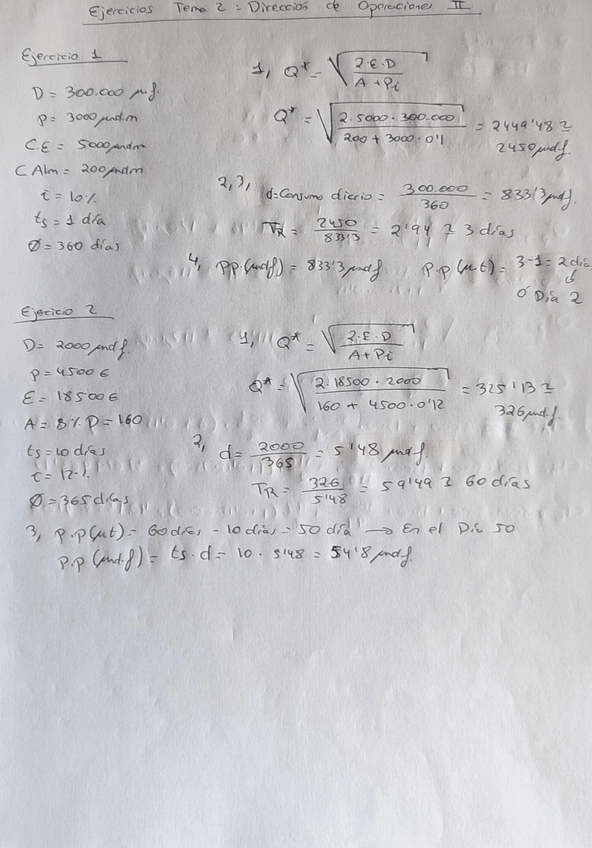 Ejercicios Tema 2: Dirección de Operaciones II
Ejercicio 1
D = 300.000 u.f.
P = 3000 und.m
C.E = 5000 und.m
C Alm = 200 und.m
i = 10%
ts = 1 día
Ø = 360 días
1, Q* = √(2·E·D / A + Pi)
Q* = √(2·5000·300.000 / 200 + 3000·0'1) = 2449'48 ≈
2450 und.f.
2,3, d = Consumo diario = 300.000 / 360 = 833'3 und.f.
TR = 2450 / 833'3 = 2'94 ≈ 3 días
4, P.p (und.f) = 833'3 und.f P.p (ut) = 3-1 = 2 día
ó Día 2
Ejercicio 2
D = 2000 und.f.
P = 4500 €
E = 18500 €
A = 8% D = 160
ts = 10 días
i = 12%
Ø = 365 días
1, Q* = √(2·E·D / A + Pi)
Q* = √(2·18500·2000 / 160 + 4500·0'12) = 325'13 ≈
326 und.f.
2, d = 2000 / 365 = 5'48 und.f.
TR = 326 / 5'48 = 59'49 ≈ 60 días
3, P.p (ut) = 60 días - 10 días = 50 día → En el Día 50
P.p (und.f) = ts · d = 10 · 5'48 = 54'8 und.f.